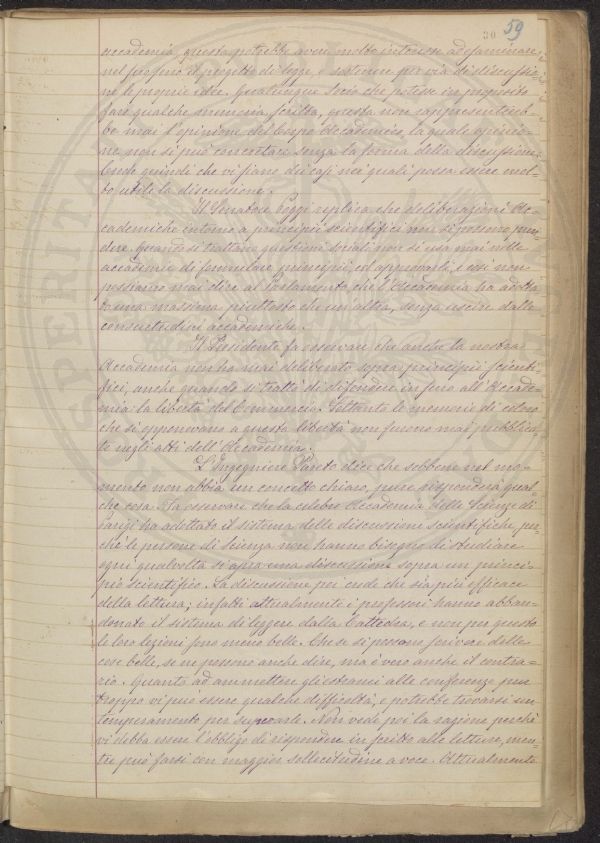 30 59
accademia, questa potrebbe avere molto interesse ad esaminare
nel proprio il progetto di legge e sostenere per via di discussio-
ne le proprie idee. Qualunque Socio che potesse in proposito
fare qualche memoria scritta, questa non rappresentereb-
be mai l'opinione del corpo Accademico, la quale opinio-
ne non si può concretare senza la forma della discussione.
Crede quindi che vi siano dei casi nei quali possa essere mol-
to utile la discussione.
Il Senatore Poggi replica che deliberazioni Ac-
cademiche intorno a principii scientifici non si possono pren-
dere. Quando si trattano questioni sociali non si usa mai nelle
accademie di formulare principii, ed approvarli, e così non
possiamo mai dire al Parlamento che l'Accademia ha adotta-
to una massima piuttosto che un'altra, senza uscire dalle
consuetudini accademiche.
Il Presidente fa osservare che anche la nostra
Accademia non ha mai deliberato sopra principii scienti-
fici, anche quando si trattò di difendere in seno all'Accade-
mia la libertà del Commercio. Soltanto le memorie di coloro
che si opponevano a questa libertà non furono mai pubblica-
te negli atti dell'Accademia.
L'Ingegniere Pareto dice che sebbene nel mo-
mento non abbia un concetto chiaro, pure risponderà qual
che cosa. Fa osservare che la celebre Accademia delle Scienze di
Parigi ha adottato il sistema delle discussioni scientifiche, per-
chè le persone di Scienza non hanno bisogno di studiare
ogni qualvolta si apra una discussione sopra un princi-
pio scientifico. La discussione poi crede che sia più efficace
della lettura; infatti attualmente i professori hanno abban-
donato il sistema di leggere dalla Cattedra, e non per questo
le loro lezioni sono meno belle. Che se si possono scrivere delle
cose belle, se ne possono anche dire, ma è vero anche il contra-
rio. Quanto ad ammetter gli estranei alle conferenze pur
troppo vi può essere qualche difficoltà, e potrebbe trovarsi un
temperamento per superarle. Non vede poi la ragione perchè
vi debba essere l'obbligo di rispondere in scritto alle letture, men-
tre può farsi con maggior sollecitudine a voce. Attualmente